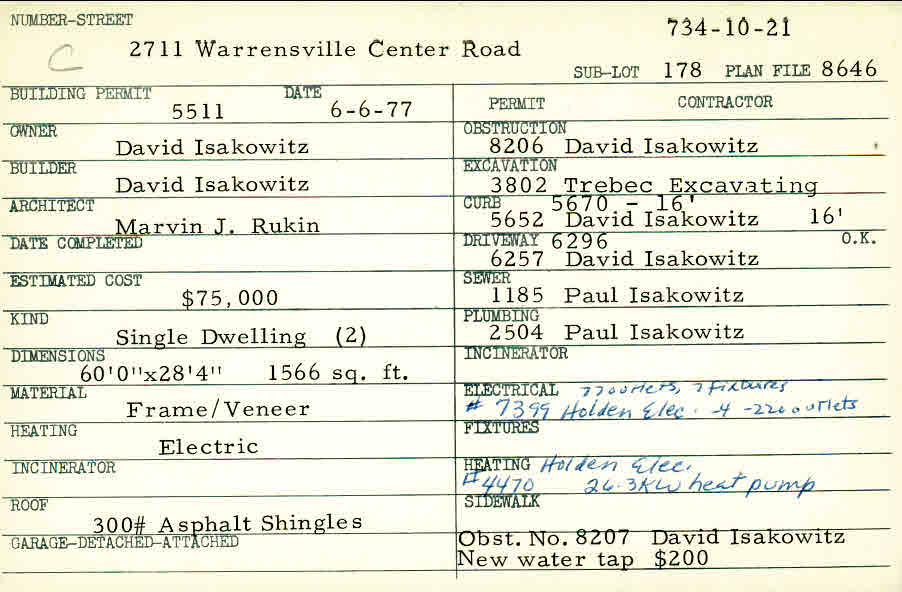 NUMBER-STREET
734-10-21
C
2711 Warrensville Center Road
SUB-LOT 178 PLAN FILE 8646
BUILDING PERMIT DATE
5511 6-6-77
PERMIT CONTRACTOR
OWNER
David Isakowitz
OBSTRUCTION
8206 David Isakowitz
BUILDER
David Isakowitz
EXCAVATION
3802 Trebec Excavating
ARCHITECT
Marvin J. Rukin
CURB 5670 - 16'
5652 David Isakowitz 16'
DATE COMPLETED
DRIVEWAY 6296 O.K.
6257 David Isakowitz
ESTIMATED COST
$75,000
SEWER
1185 Paul Isakowitz
KIND
Single Dwelling (2)
PLUMBING
2504 Paul Isakowitz
DIMENSIONS
60'0"x28'4" 1566 sq. ft.
INCINERATOR
MATERIAL
Frame/Veneer
ELECTRICAL 77 outlets, 7 fixtures
# 7399 Holden Elec. 4 -220 outlets
HEATING
Electric
FIXTURES
INCINERATOR
HEATING Holden Elec.
#4470 26.3KW heat pump
ROOF
300# Asphalt Shingles
SIDEWALK
GARAGE-DETACHED-ATTACHED
Obst. No. 8207 David Isakowitz
New water tap $200